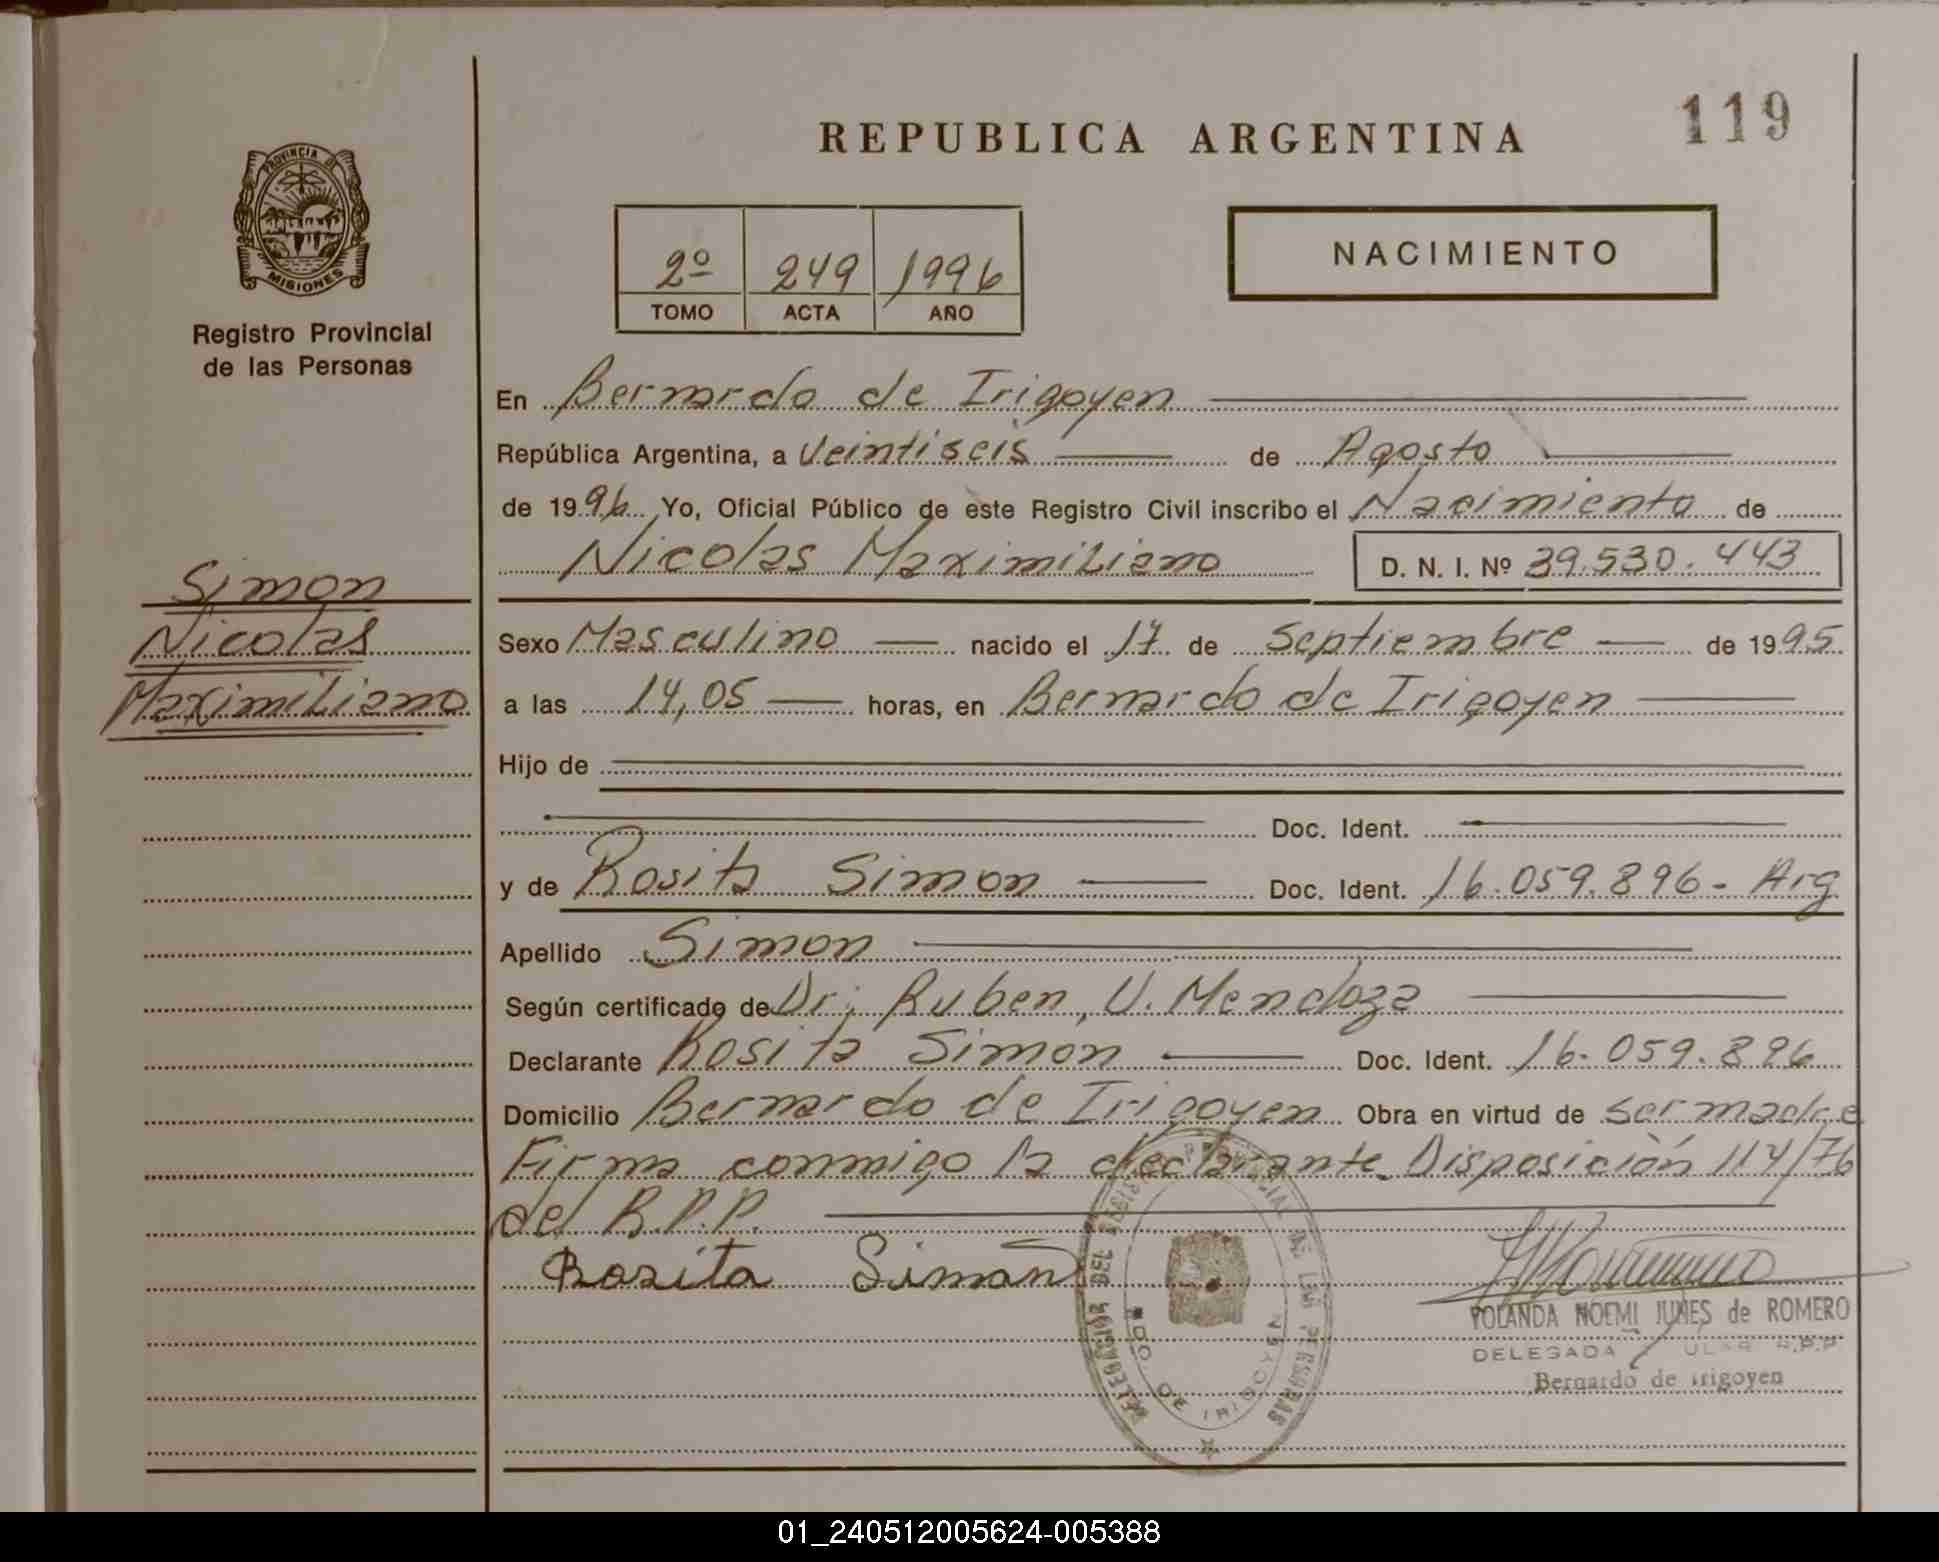 119
REPUBLICA ARGENTINA
PROVINCIA DE
MISIONES
Registro Provincial
de las Personas
2º 249 1996
TOMO ACTA AÑO
NACIMIENTO
En Bernardo de Irigoyen
República Argentina, a Veintiseis de Agosto
de 1996 Yo, Oficial Público de este Registro Civil inscribo el Nacimiento de
Nicolas Maximiliano D. N. I. Nº 39.530.443
Simon
Nicolas
Maximiliano
Sexo Masculino nacido el 17 de Septiembre de 1995
a las 14,05 horas, en Bernardo de Irigoyen
Hijo de
Doc. Ident.
y de Rosita Simon Doc. Ident. 16.059.896 - Arg
Apellido Simon
Según certificado de Dr; Ruben, U. Mendoza
Declarante Rosita Simon Doc. Ident. 16.059.896
Domicilio Bernardo de Irigoyen Obra en virtud de ser madre
Firma conmigo la declarante. Disposición 114/76
del R.P.P.
Rosita Simon
DELEGACION DEL REGISTRO PROVINCIAL DE LAS PERSONAS
BDO. DE IRIGOYEN
YOLANDA NOEMI JUNES de ROMERO
DELEGADA R.P.P.
Bernardo de Irigoyen
01_240512005624-005388